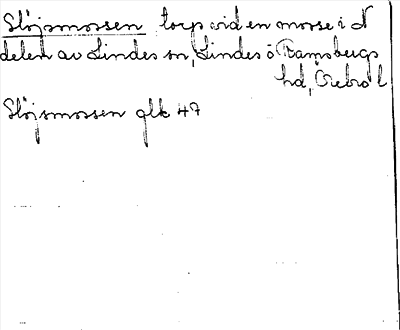 Slöjsmossen torp vid en mosse i N
delen av Lindes sn, Lindes o Ramsbergs
hd, Örebro l
Slöjsmossen glk 47